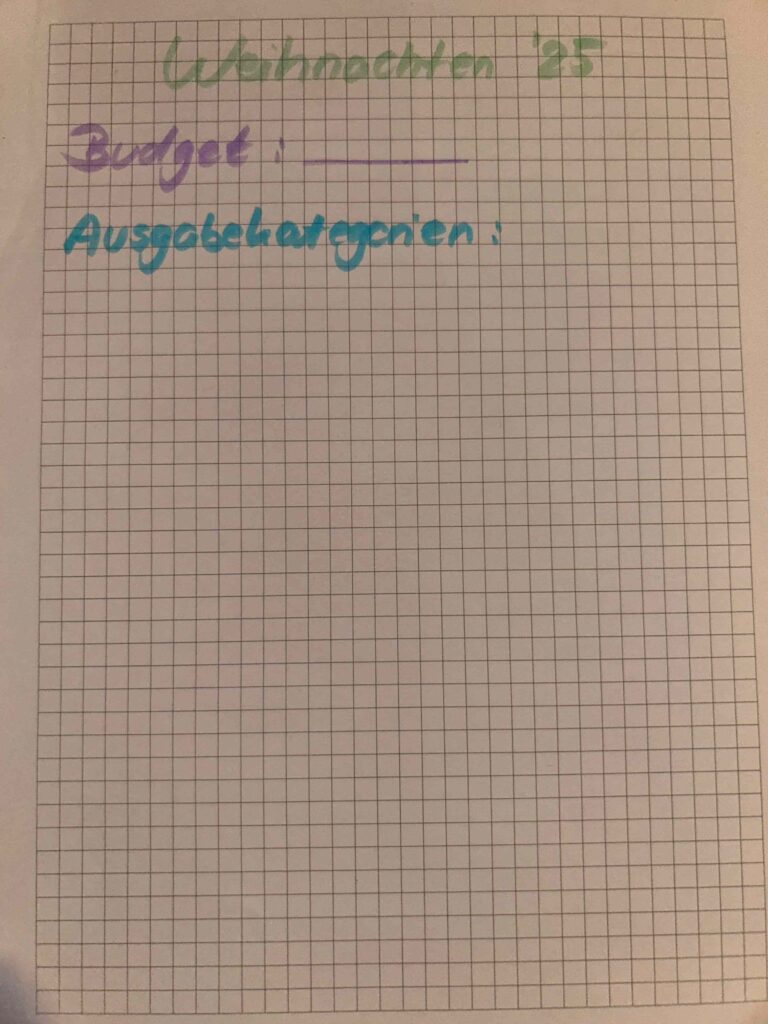 Weihnachten '25
Budget : ________
Ausgabekategorien :